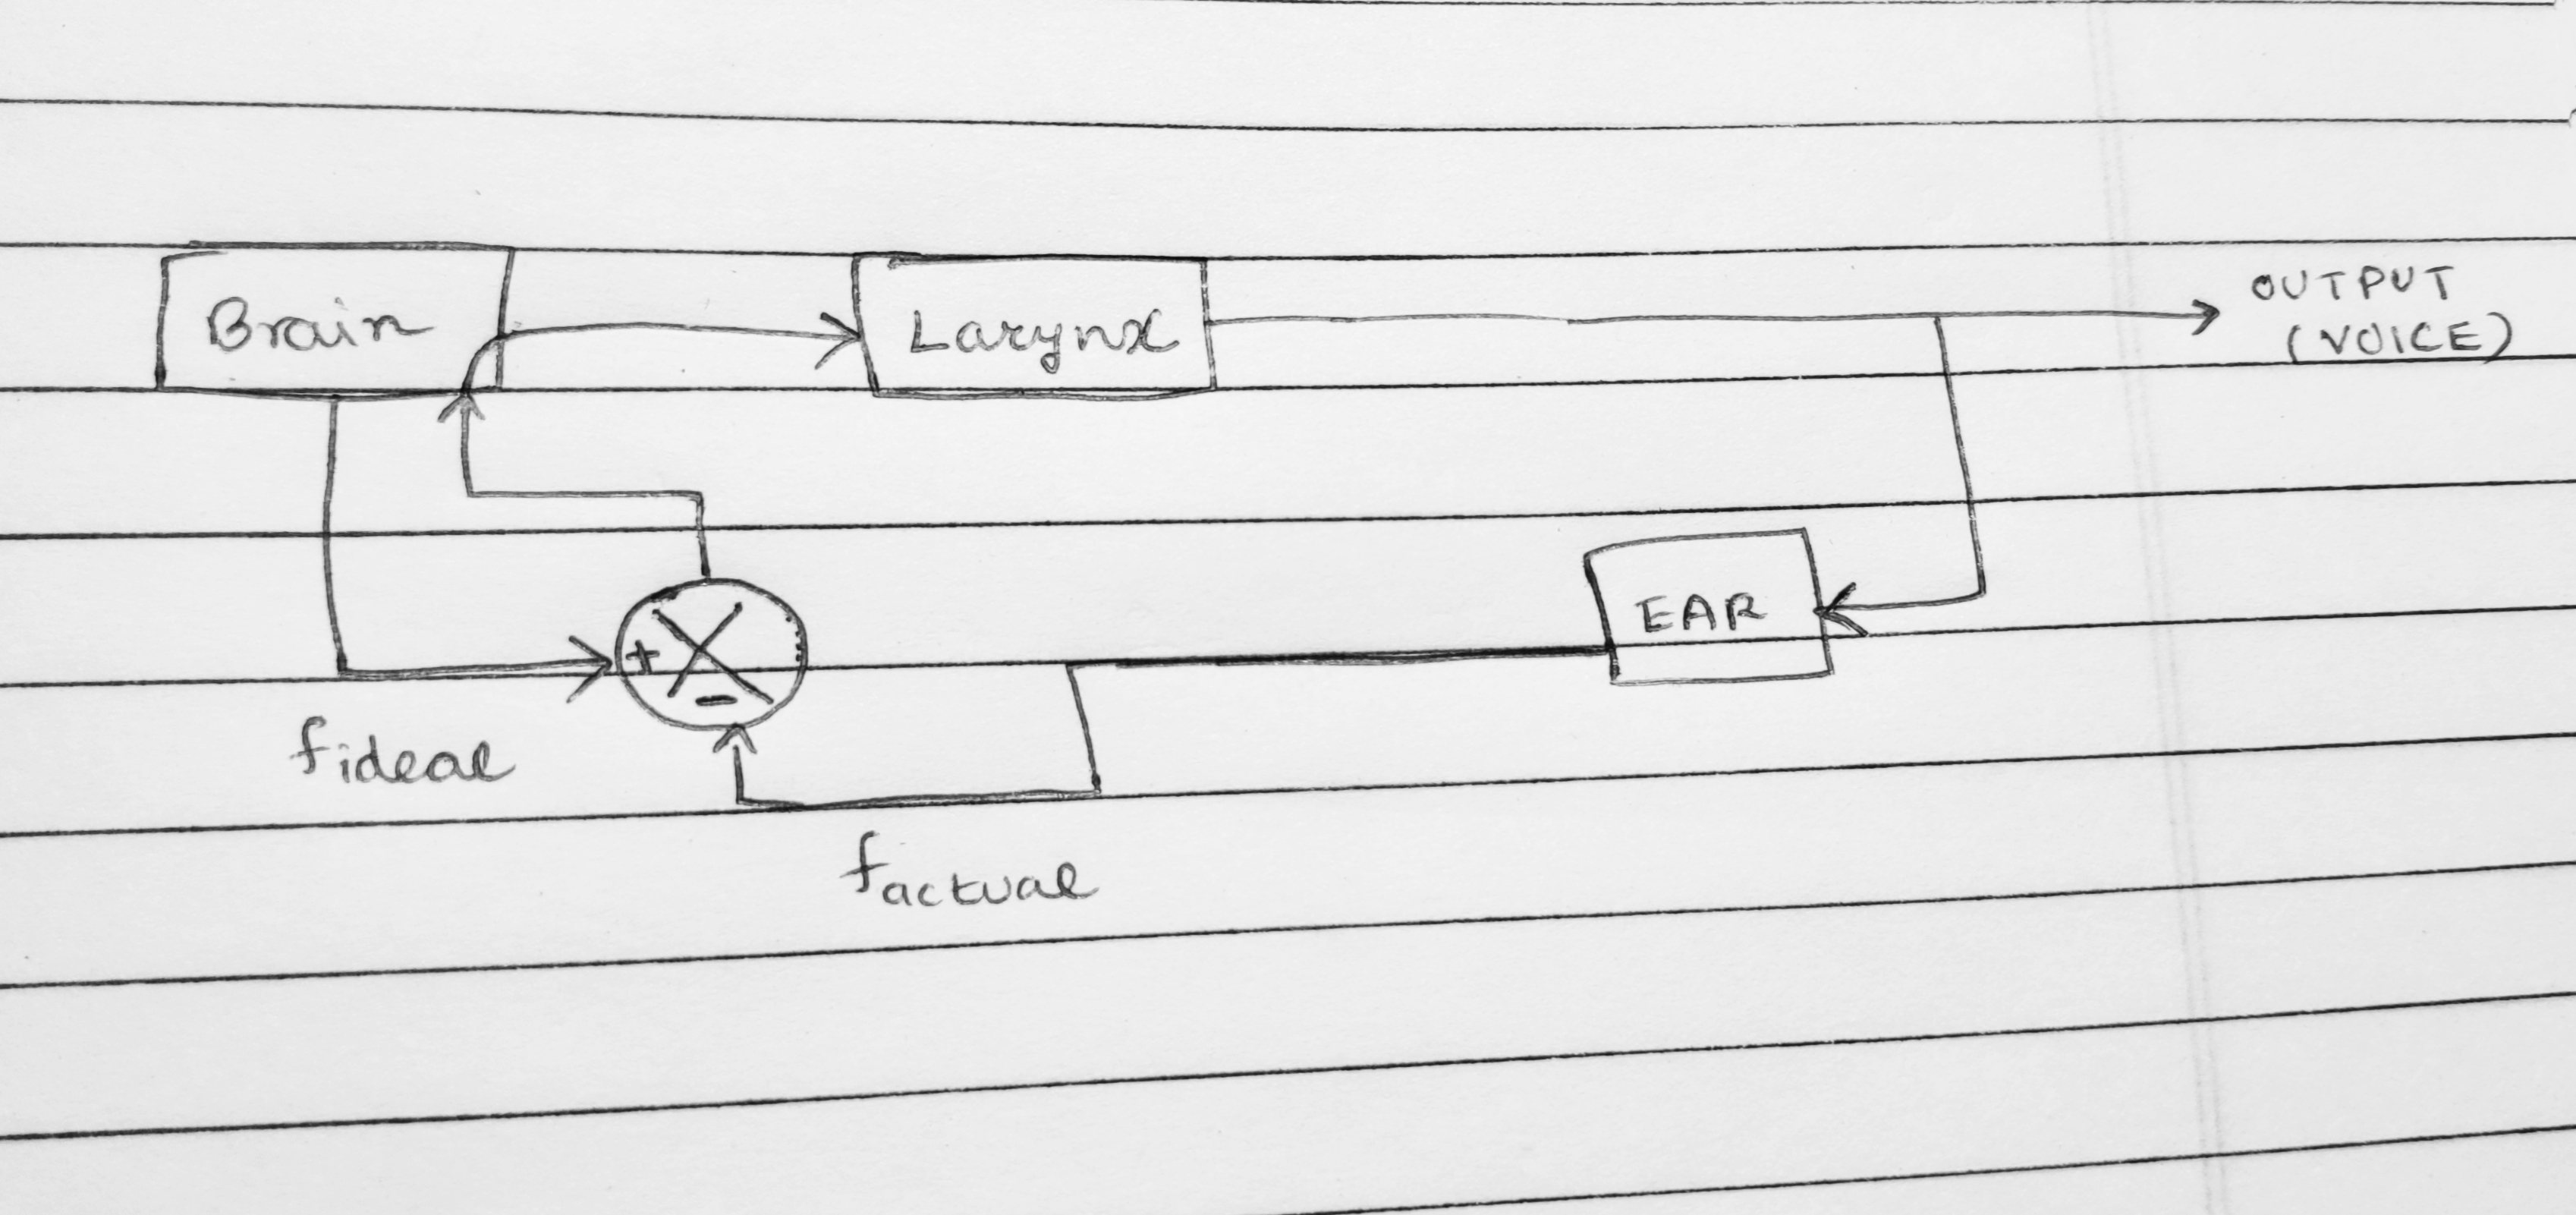 Brain
Larynx
OUTPUT
(VOICE)
EAR
+
-
fideal
factual